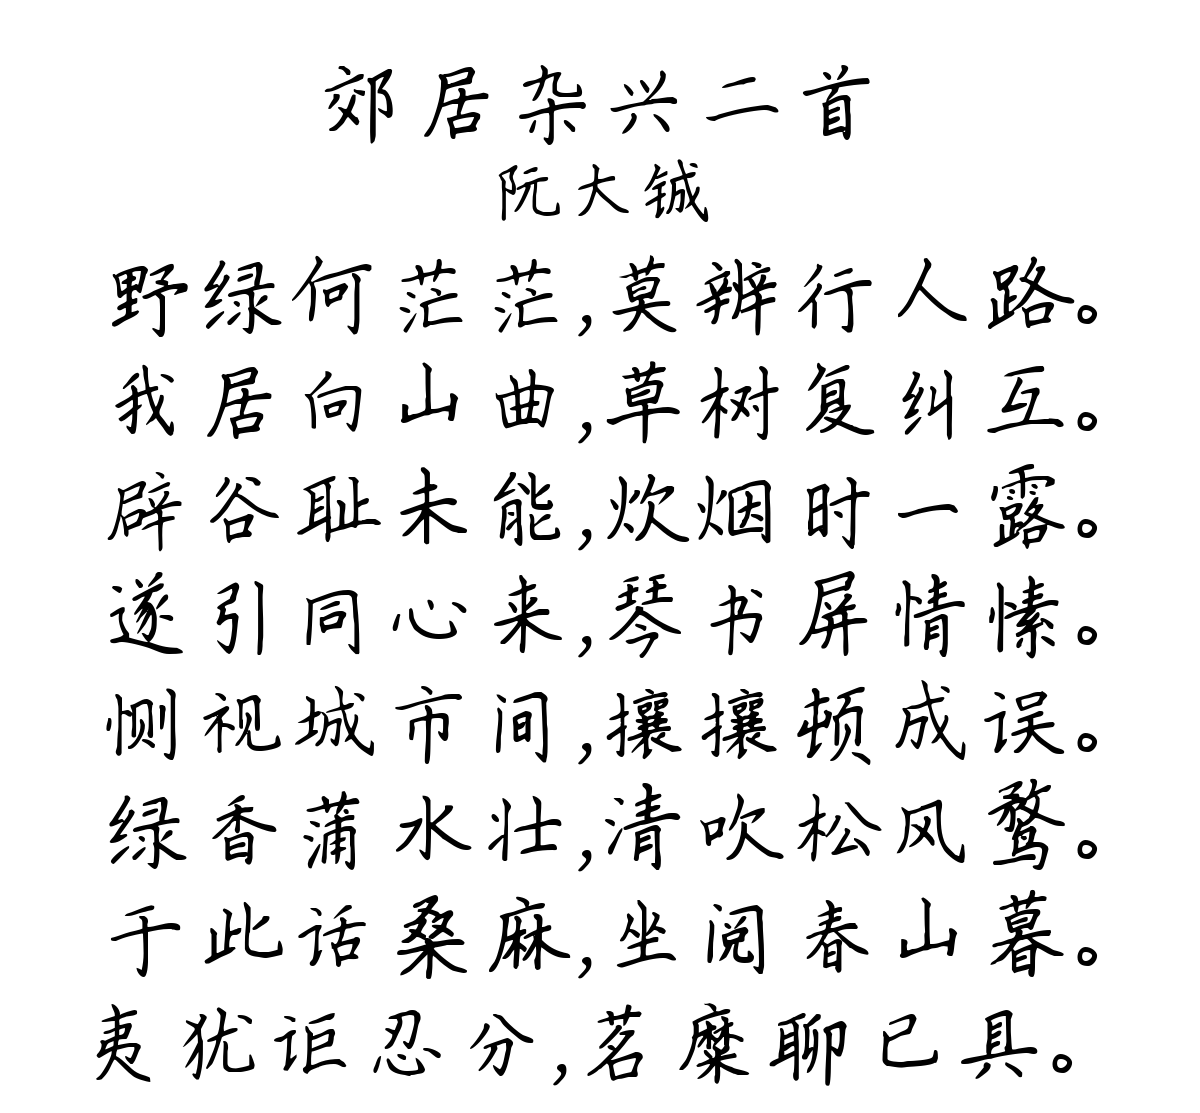 郊居杂兴二首
阮大铖
野绿何茫茫,莫辨行人路。
我居向山曲,草树复纠互。
辟谷耻未能,炊烟时一露。
遂引同心来,琴书屏情愫。
恻视城市间,攘攘顿成误。
绿香蒲水壮,清吹松风鹜。
于此话桑麻,坐阅春山暮。
夷犹讵忍分,茗糜聊已具。